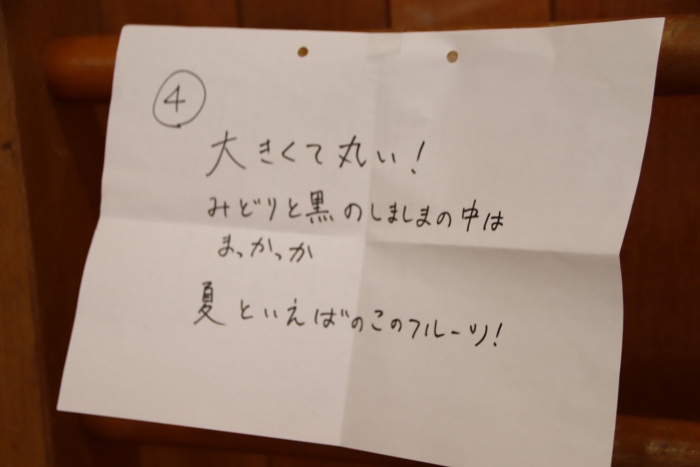 ④
大きくて丸い!
みどりと黒のしましまの中は
まっかっか
夏といえばのこのフルーツ!